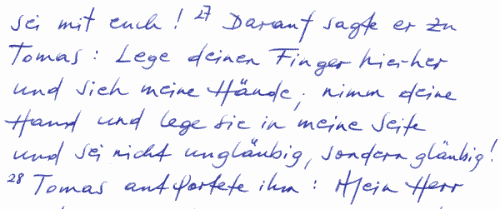 sei mit euch! ²⁷ Darauf sagte er zu
Tomas: Lege deinen Finger hierher
und sieh meine Hände; nimm deine
Hand und lege sie in meine Seite
und sei nicht ungläubig, sondern gläubig!
²⁸ Tomas antwortete ihm: Mein Herr